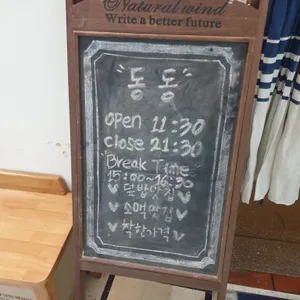 Natural wind
Write a better future
"동동"
open 11:30
close 21:30
"Break Time"
15:00~16:30
♡덮밥맛집♡
♡소맥맛집♡
♡착한가격♡